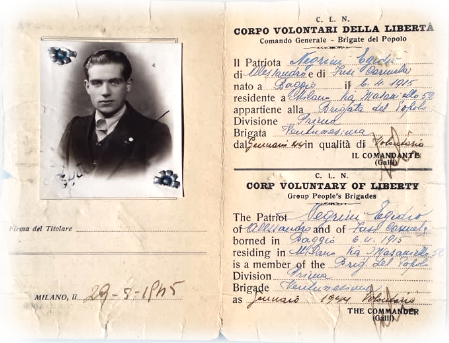 Firma del Titolare
MILANO, li 29-5-1945
C. L. N.
CORPO VOLONTARI DELLA LIBERTÀ
Comando Generale - Brigate del Popolo
Il Patriota Negrini Egidio
di Alessandro e di
nato a Baggio il 6.4.1915
residente a Milano Via Masaniello 50
appartiene alla Brigata del Popolo
Divisione Prima
Brigata Ventunesima
dal Gennaio 44 in qualità di Volontario
IL COMANDANTE
(Galli)
C. L. N.
CORP VOLUNTARY OF LIBERTY
Group People's Brigades
The Patriot Negrini Egidio
of Alessandro and of
borned in Baggio 6.4.1915
residing in Milano Via Masaniello 50
is a member of the Brig. del Popolo
Division Prima
Brigade Ventunesima
as Gennaio 1944 Volontario
THE COMMANDER
(Galli)